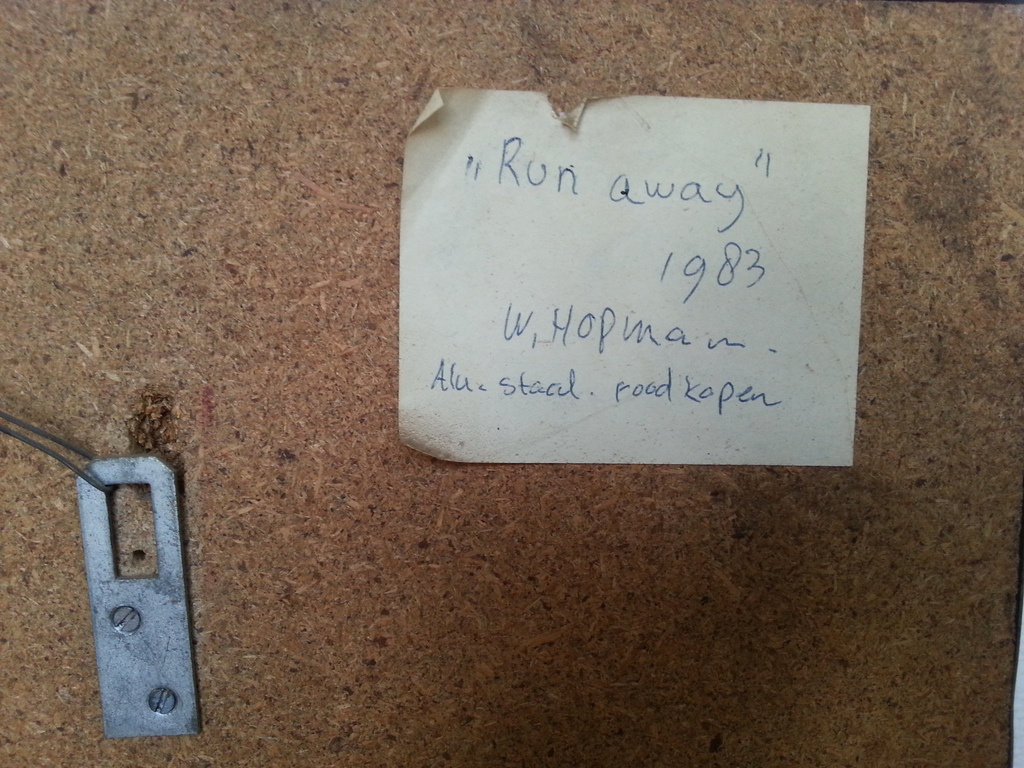 "Run away"
1983
W. Hopman.
Alu. staal. roodkopen